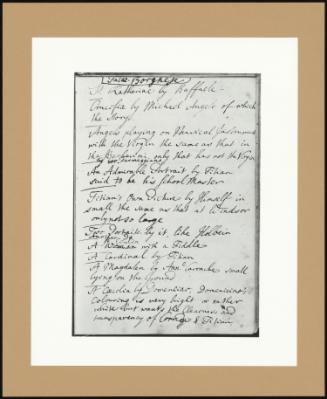 Borghese
St. Catherine by Raffaele -
Crucifix by Michael Angelo of which
the Story
Angels playing on Musical Instruments
with the Virgin the same as that in
the Barberini only that has not the Virgin
An Admirable Portrait by Titian
said to be his School Master
Titian's Own Picture by Himself in
small the same as that at Windsor
only not so large
Two Portraits by it like Holbein
A Woman with a Fiddle
A Cardinal by Titian
A Magdalen by Ann. Carrache small
lying on the Ground
A Cecilia by Domenichin, Domenicino's
Colouring is very bright or rather
white but wants the Clearness and
transparency of Coregio & Titian